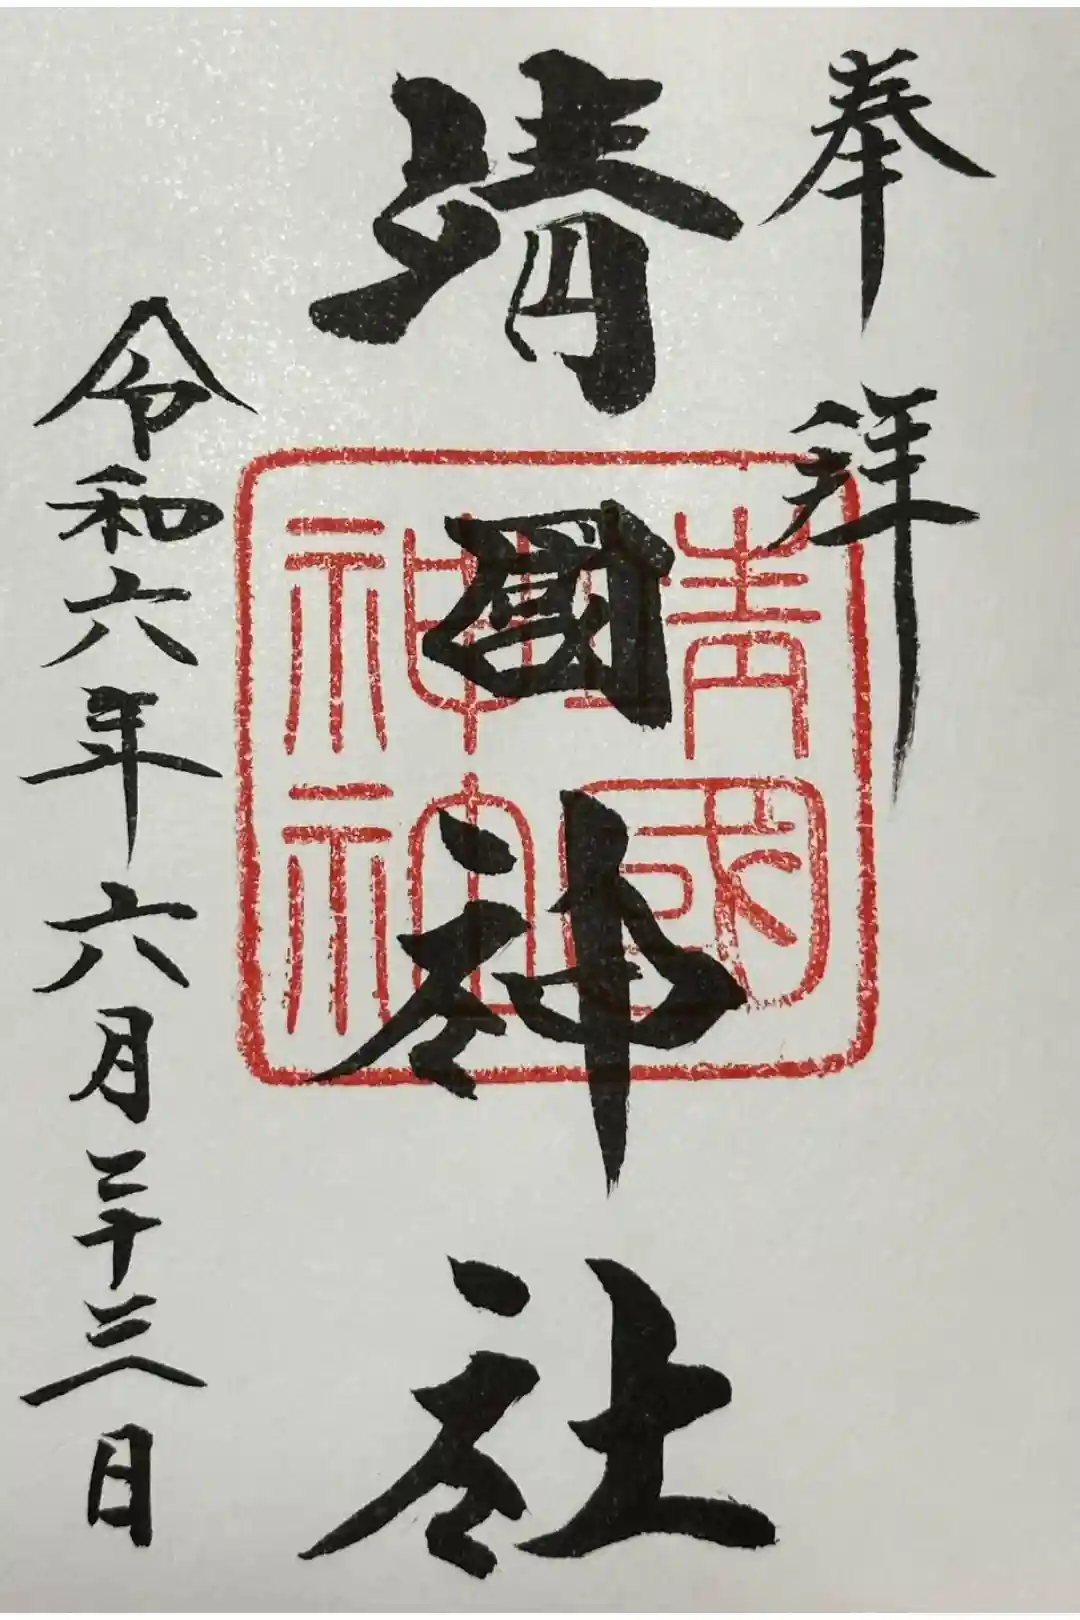 奉拝
靖國神社
令和六年六月二十三日
靖國神社